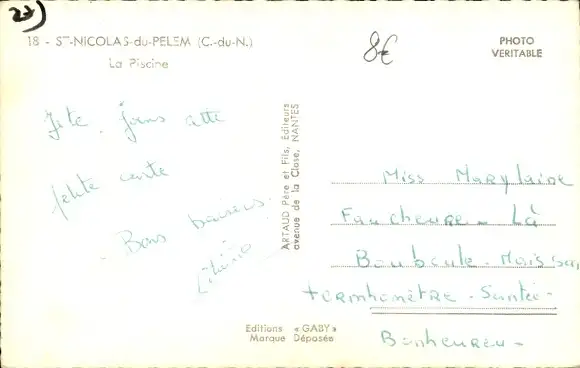 27)
18 - ST-NICOLAS-du-PELEM (C.-du-N.)
La Piscine
8€
PHOTO
VERITABLE
Je te joins cette
petite carte
Bons baisers.
ARTAUD Père et Fils, Editeurs
avenue de la Close, NANTES
Miss Marylaine
Faucheure - Là
Bouboule - Maison
termhomètre - Santée -
Bonheureu -
Editions « GABY »
Marque Déposée